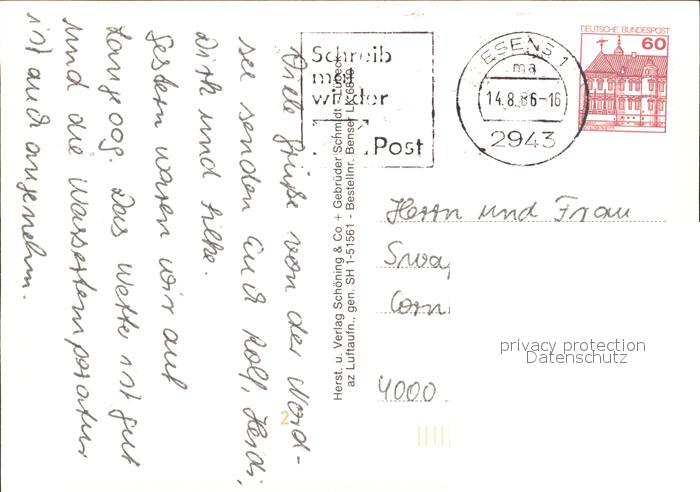 Viele Grüße von der Nord-
see senden Euch Rolf, Heidi,
Dirk und Hilke.
Gestern waren wir auf
Langeoog. Das Wetter ist gut
und die Wassertemperatur
ist auch angenehm.
Schreib
mal
wieder
Post
ESENS 1
ma
14.8.86-16
2943
DEUTSCHE BUNDESPOST
60
Herst. u. Verlag Schöning & Co + Gebrüder Schmidt - Lübeck
az Luftaufn., gen. SH 1-51561 - Bestellnr. Benser LK
Herrn und Frau
4000
privacy protection
Datenschutz
2